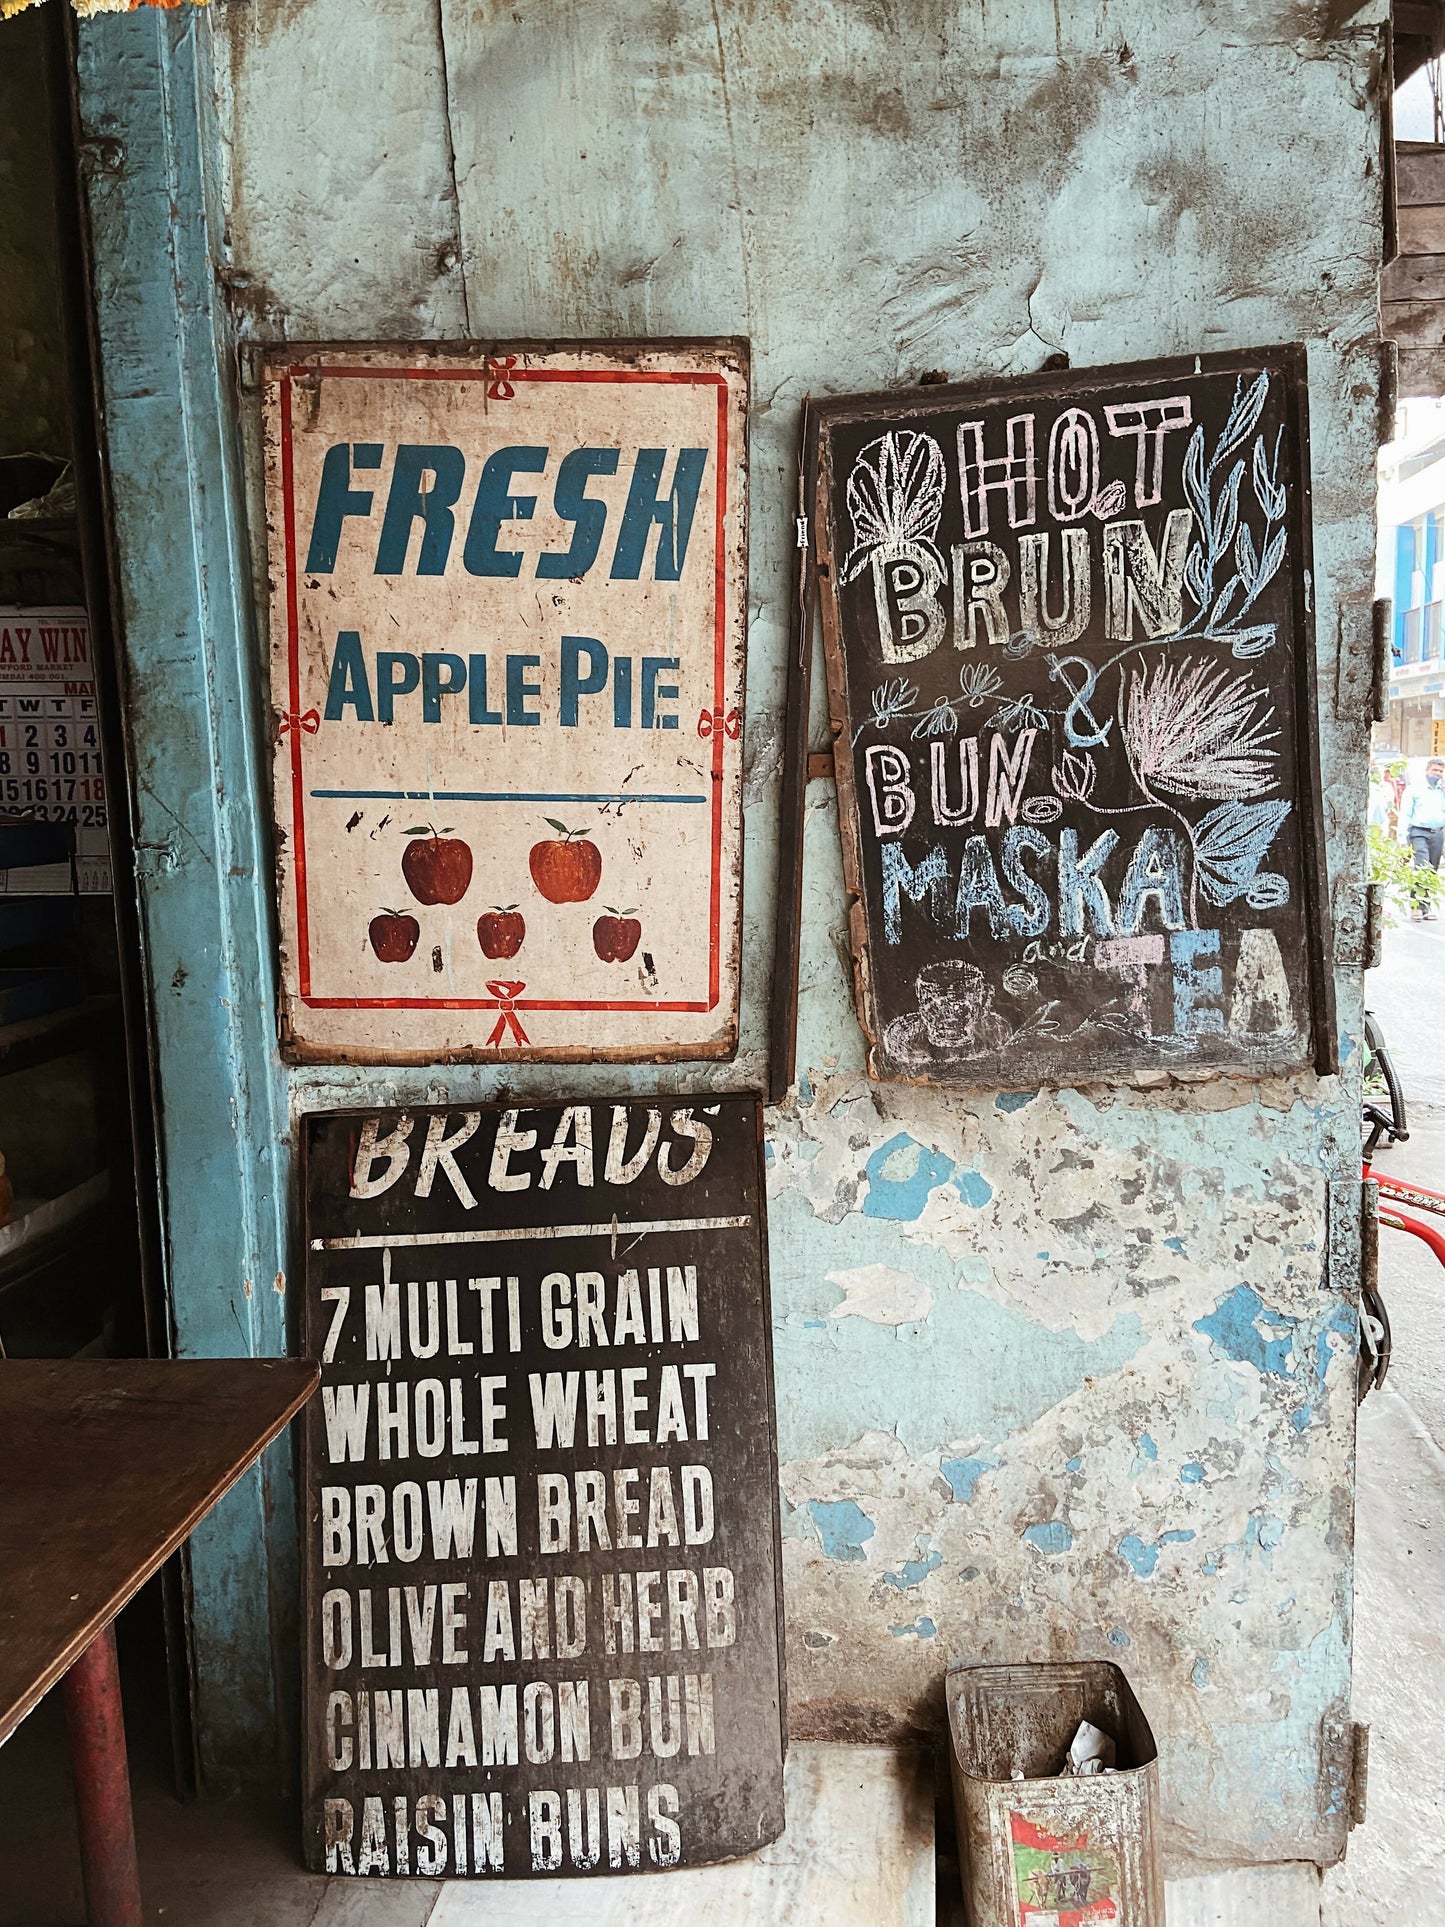 FRESH
APPLE PIE
HOT
BRUN
&
BUN
MASKA
and TEA
BREADS
7 MULTI GRAIN
WHOLE WHEAT
BROWN BREAD
OLIVE AND HERB
CINNAMON BUN
RAISIN BUNS
AY WIN
WFORD MARKET
MBAI 400 001.
MA
T W T F
1 2 3 4
8 9 10 11
15 16 17 18
23 24 25